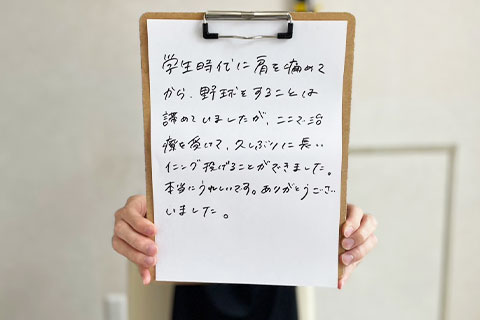 学生時代に肩を痛めて
から、野球をすることは
諦めていましたが、ここで治
療を受けて、久しぶりに長い
イニング投げることができました。
本当にうれしいです。ありがとうござ
いました。